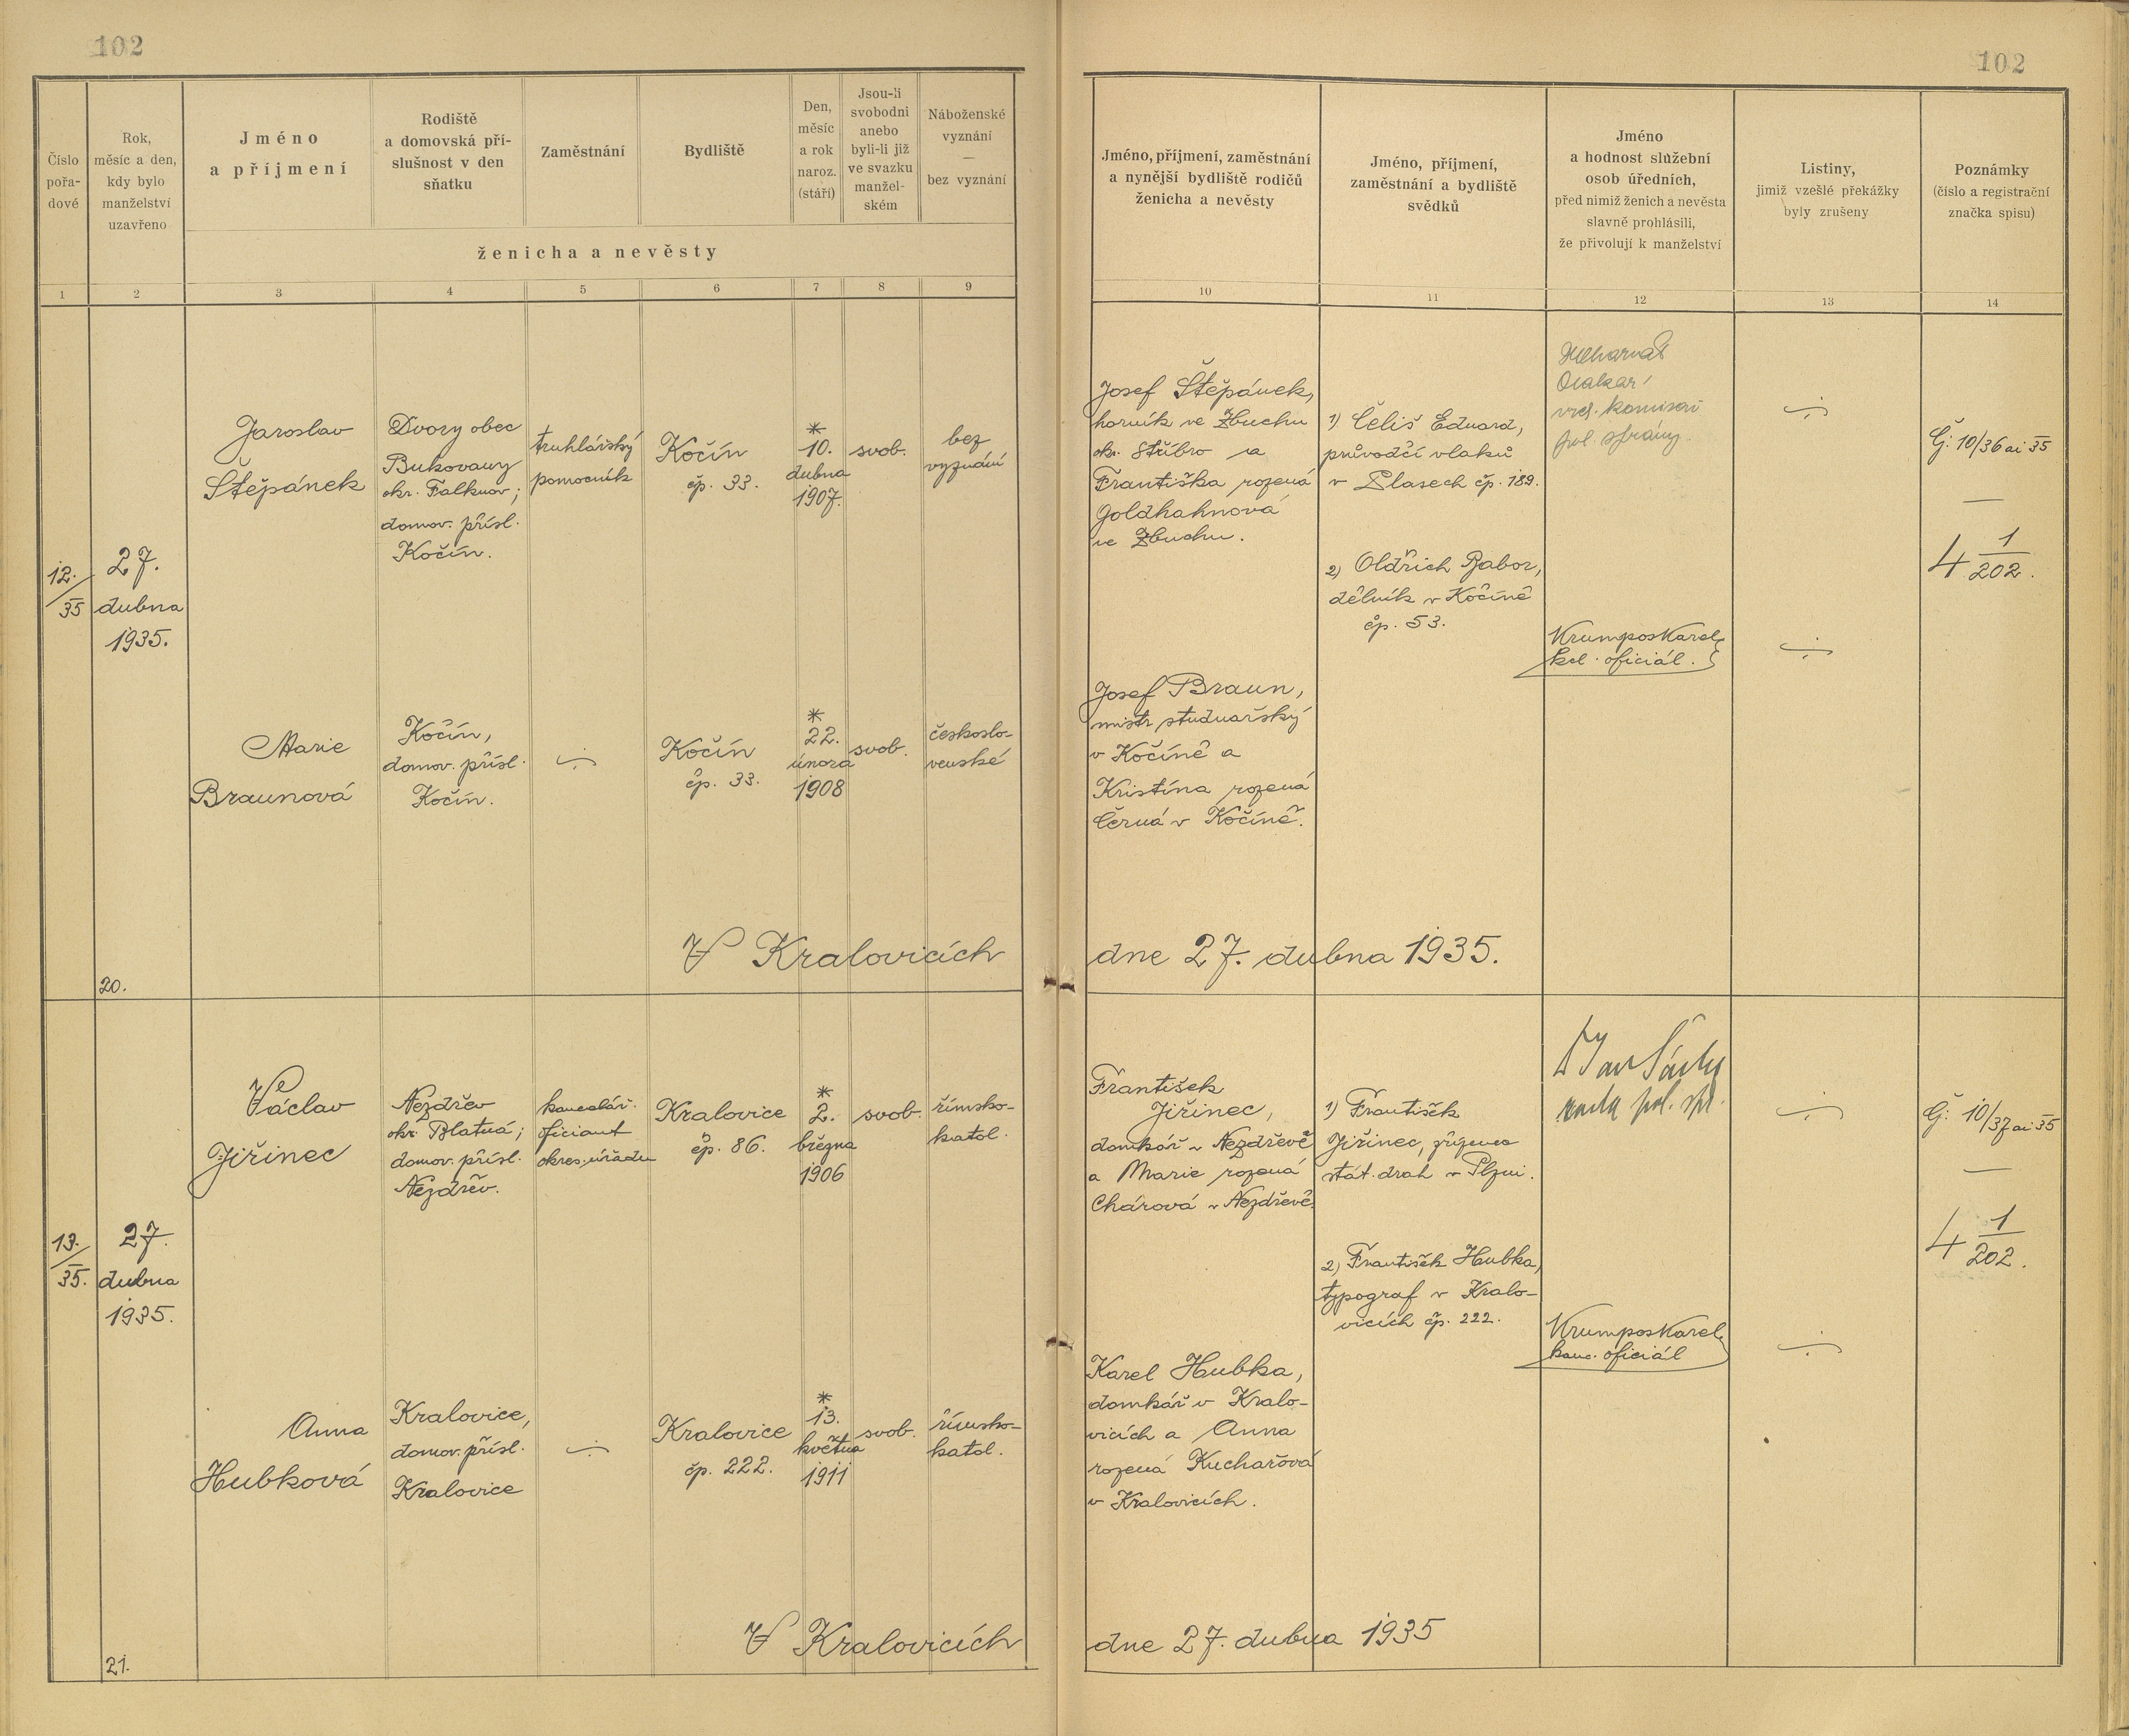 102
102
Číslo
pořa-
dové
Rok,
měsíc a den,
kdy bylo
manželství
uzavřeno
Jméno
a příjmení
Rodiště
a domovská pří-
slušnost v den
sňatku
Zaměstnání
Bydliště
Den,
měsíc
a rok
naroz.
(stáří)
Jsou-li
svobodni
anebo
byli-li již
ve svazku
manžel-
ském
Náboženské
vyznání
—
bez vyznání
ženicha a nevěsty
Jméno, příjmení, zaměstnání
a nynější bydliště rodičů
ženicha a nevěsty
Jméno, příjmení,
zaměstnání a bydliště
svědků
Jméno
a hodnost služební
osob úředních,
před nimiž ženich a nevěsta
slavně prohlásili,
že přivolují k manželství
Listiny,
jimiž vzešlé překážky
byly zrušeny
Poznámky
(číslo a registrační
značka spisu)
1 2 3 4 5 6 7 8 9 10 11 12 13 14
12./35
27.
dubna
1935.
Jaroslav
Štěpánek
Dvory obec
Bukovany
okr. Falknov;
domov. přísl.
Kočín.
truhlářský
pomocník
Kočín
čp. 33.
*
10.
dubna
1907.
svob.
bez
vyznání
Josef Štěpánek,
horník ve Zbuchu
okr. Stříbro a
Františka rozená
Goldhahnová
ve Zbuchu.
1) Čeliš Eduard,
průvodčí vlaků
v Plasech čp. 189.
2) Oldřich Gabor,
dělník v Kočíně
čp. 53.
Otakar
vrch. komisař
pol. správy.
Krumpos Karel,
kcl. oficiál.
Č: 10/36 ai 35
—
4 1/202.
Marie
Braunová
Kočín,
domov. přísl.
Kočín.
Kočín
čp. 33.
*
22.
února
1908
svob.
českoslo-
venské
Josef Braun,
mistr studnařský
v Kočíně a
Kristína rozená
Černá v Kočíně.
V Kralovicích dne 27. dubna 1935.
20.
13./35.
27.
dubna
1935.
Václav
Jiřinec
Nezdřev
okr. Blatná;
domov. přísl.
Nezdřev.
kancelář.
oficiant
okres. úřadu
Kralovice
čp. 86.
*
2.
března
1906
svob.
římsko-
katol.
František
Jiřinec,
domkář v Nezdřevě
a Marie rozená
Chárová v Nezdřevě.
1) František
Jiřinec, zřízenec
stát. drah v Plzni.
2) František Hubka,
typograf v Kralo-
vicích čp. 222.
rada pol. spr.
Krumpos Karel,
kanc. oficiál
Č: 10/37 ai 35
—
4 1/202.
Anna
Hubková
Kralovice,
domov. přísl.
Kralovice
Kralovice
čp. 222.
*
13.
května
1911
svob.
římsko-
katol.
Karel Hubka,
domkář v Kralo-
vicích a Anna
rozená Kuchařová
v Kralovicích.
V Kralovicích dne 27. dubna 1935
21.